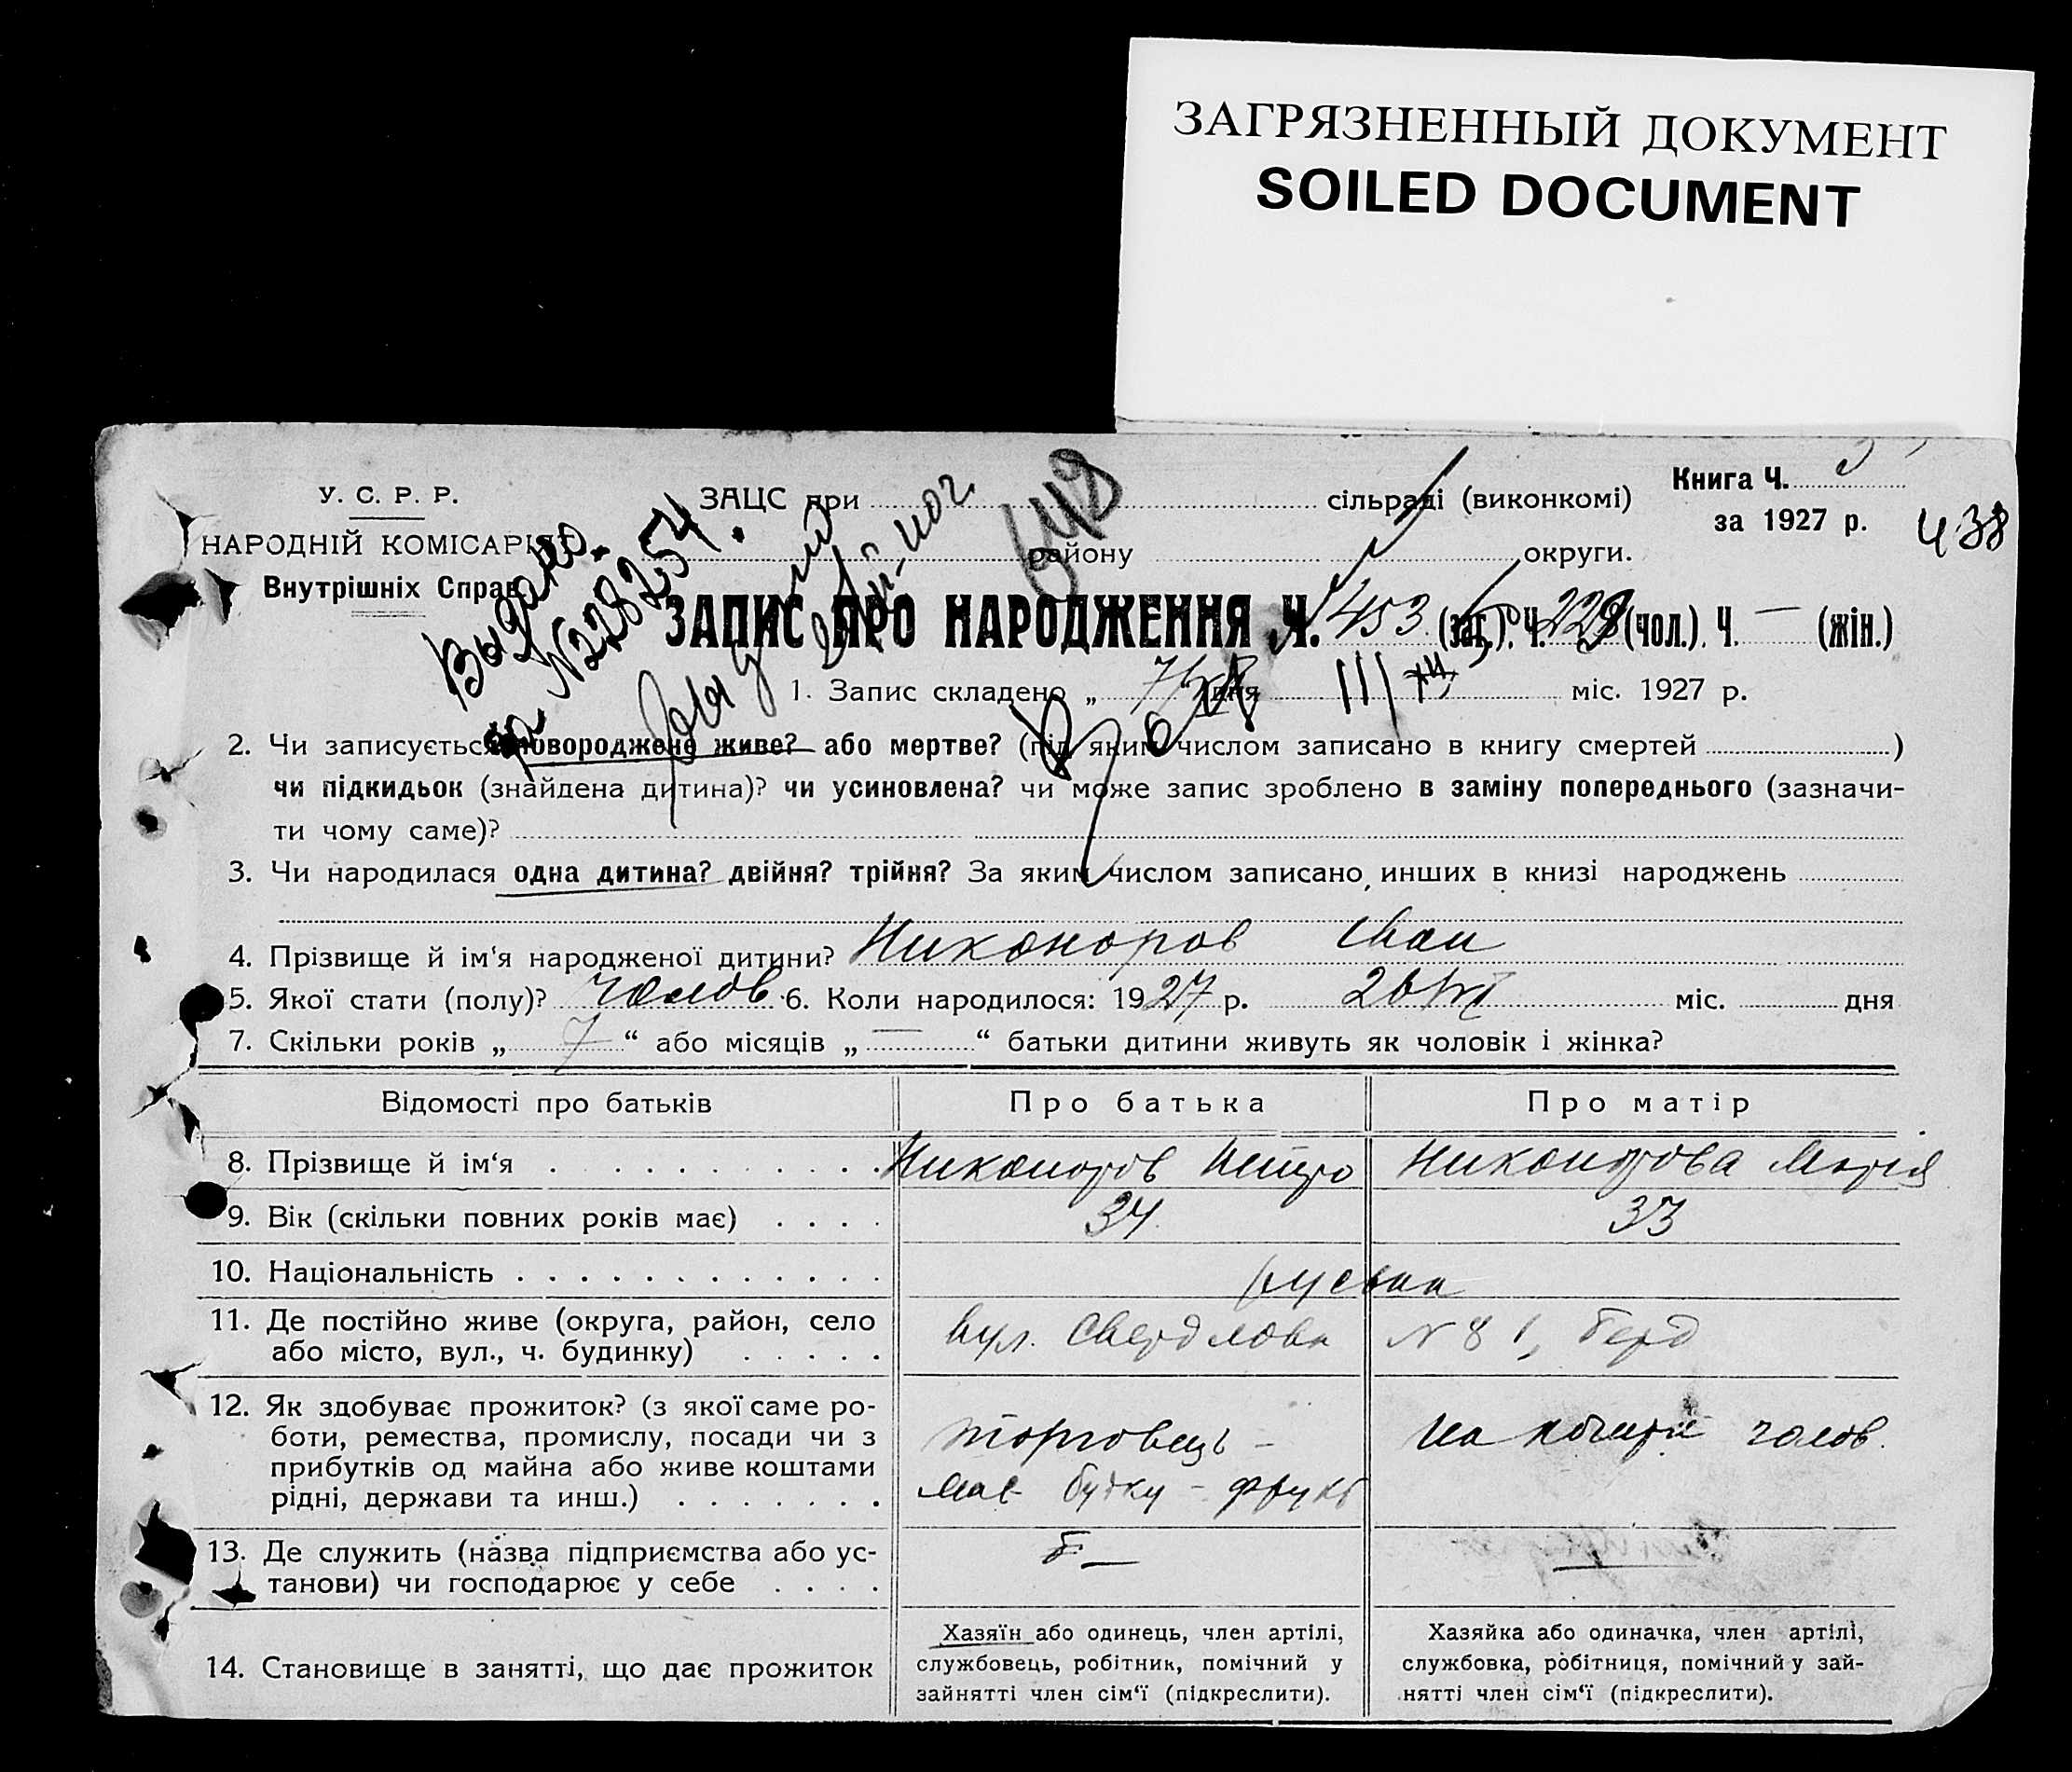 ЗАГРЯЗНЕННЫЙ ДОКУМЕНТ
SOILED DOCUMENT
Книга Ч.
за 1927 р.
438
У. С. Р. Р.
НАРОДНІЙ КОМІСАРІЯТ
Внутрішніх Справ
ЗАЦС при сільраді (виконкомі)
району округи.
Выдано
№228254
648
ЗАПИС ПРО НАРОДЖЕННЯ Ч. 453 (заг.). Ч. 228 (чол.). Ч. — (жін.)
1. Запис складено „ 7 “ дня III міс. 1927 р.
2. Чи записується новороджене живе? або мертве? (під яким числом записано в книгу смертей )
чи підкидьок (знайдена дитина)? чи усиновлена? чи може запис зроблено в заміну попереднього (зазначи-
ти чому саме)?
3. Чи народилася одна дитина? двійня? трійня? За яким числом записано инших в книзі народжень
4. Прізвище й ім‘я народженої дитини? Никоноров Иван
5. Якої стати (полу)? чолов. 6. Коли народилося: 1927 р. міс. дня
7. Скільки років „ 7 “ або місяців „ — “ батьки дитини живуть як чоловік і жінка?
Відомості про батьків Про батька Про матір
8. Прізвище й ім‘я Никоноров Петро Никонорова Марія
9. Вік (скільки повних років має) 34 33
10. Національність руська
11. Де постійно живе (округа, район, село
або місто, вул., ч. будинку)
вул. Свердлова N 81, Берд
12. Як здобуває прожиток? (з якої саме ро-
боти, ремества, промислу, посади чи з
прибутків од майна або живе коштами
рідні, держави та инш.)
торговець -
має будку - фрукт
на чолов.
13. Де служить (назва підприємства або ус-
танови) чи господарює у себе
14. Становище в занятті, що дає прожиток
Хазяїн або одинець, член артілі,
службовець, робітник, помічний у
зайнятті член сім‘ї (підкреслити).
Хазяйка або одиначка, член артілі,
службовка, робітниця, помічний у зай-
нятті член сім‘ї (підкреслити).